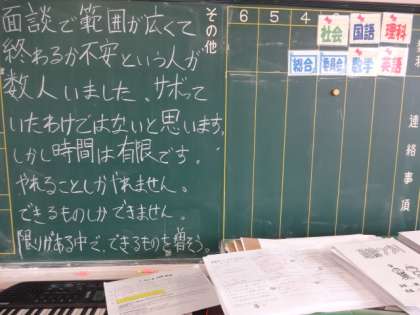 面談で範囲が広くて
終わるか不安という人が
数人いました、サボって
いたわけではないと思います。
しかし時間は有限です。
やれることしかやれません。
できるものしかできません。
限りがある中で、できるものを増そう。
その他
6 5 4
社会 国語 理科
総合 委員会 数学 英語
連絡事項